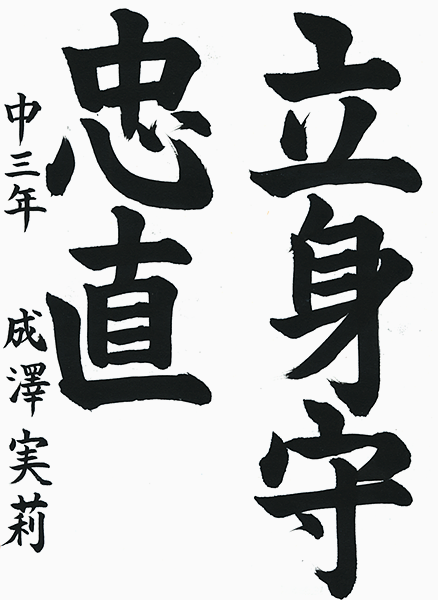 立身守
忠直
中三年 成澤実莉